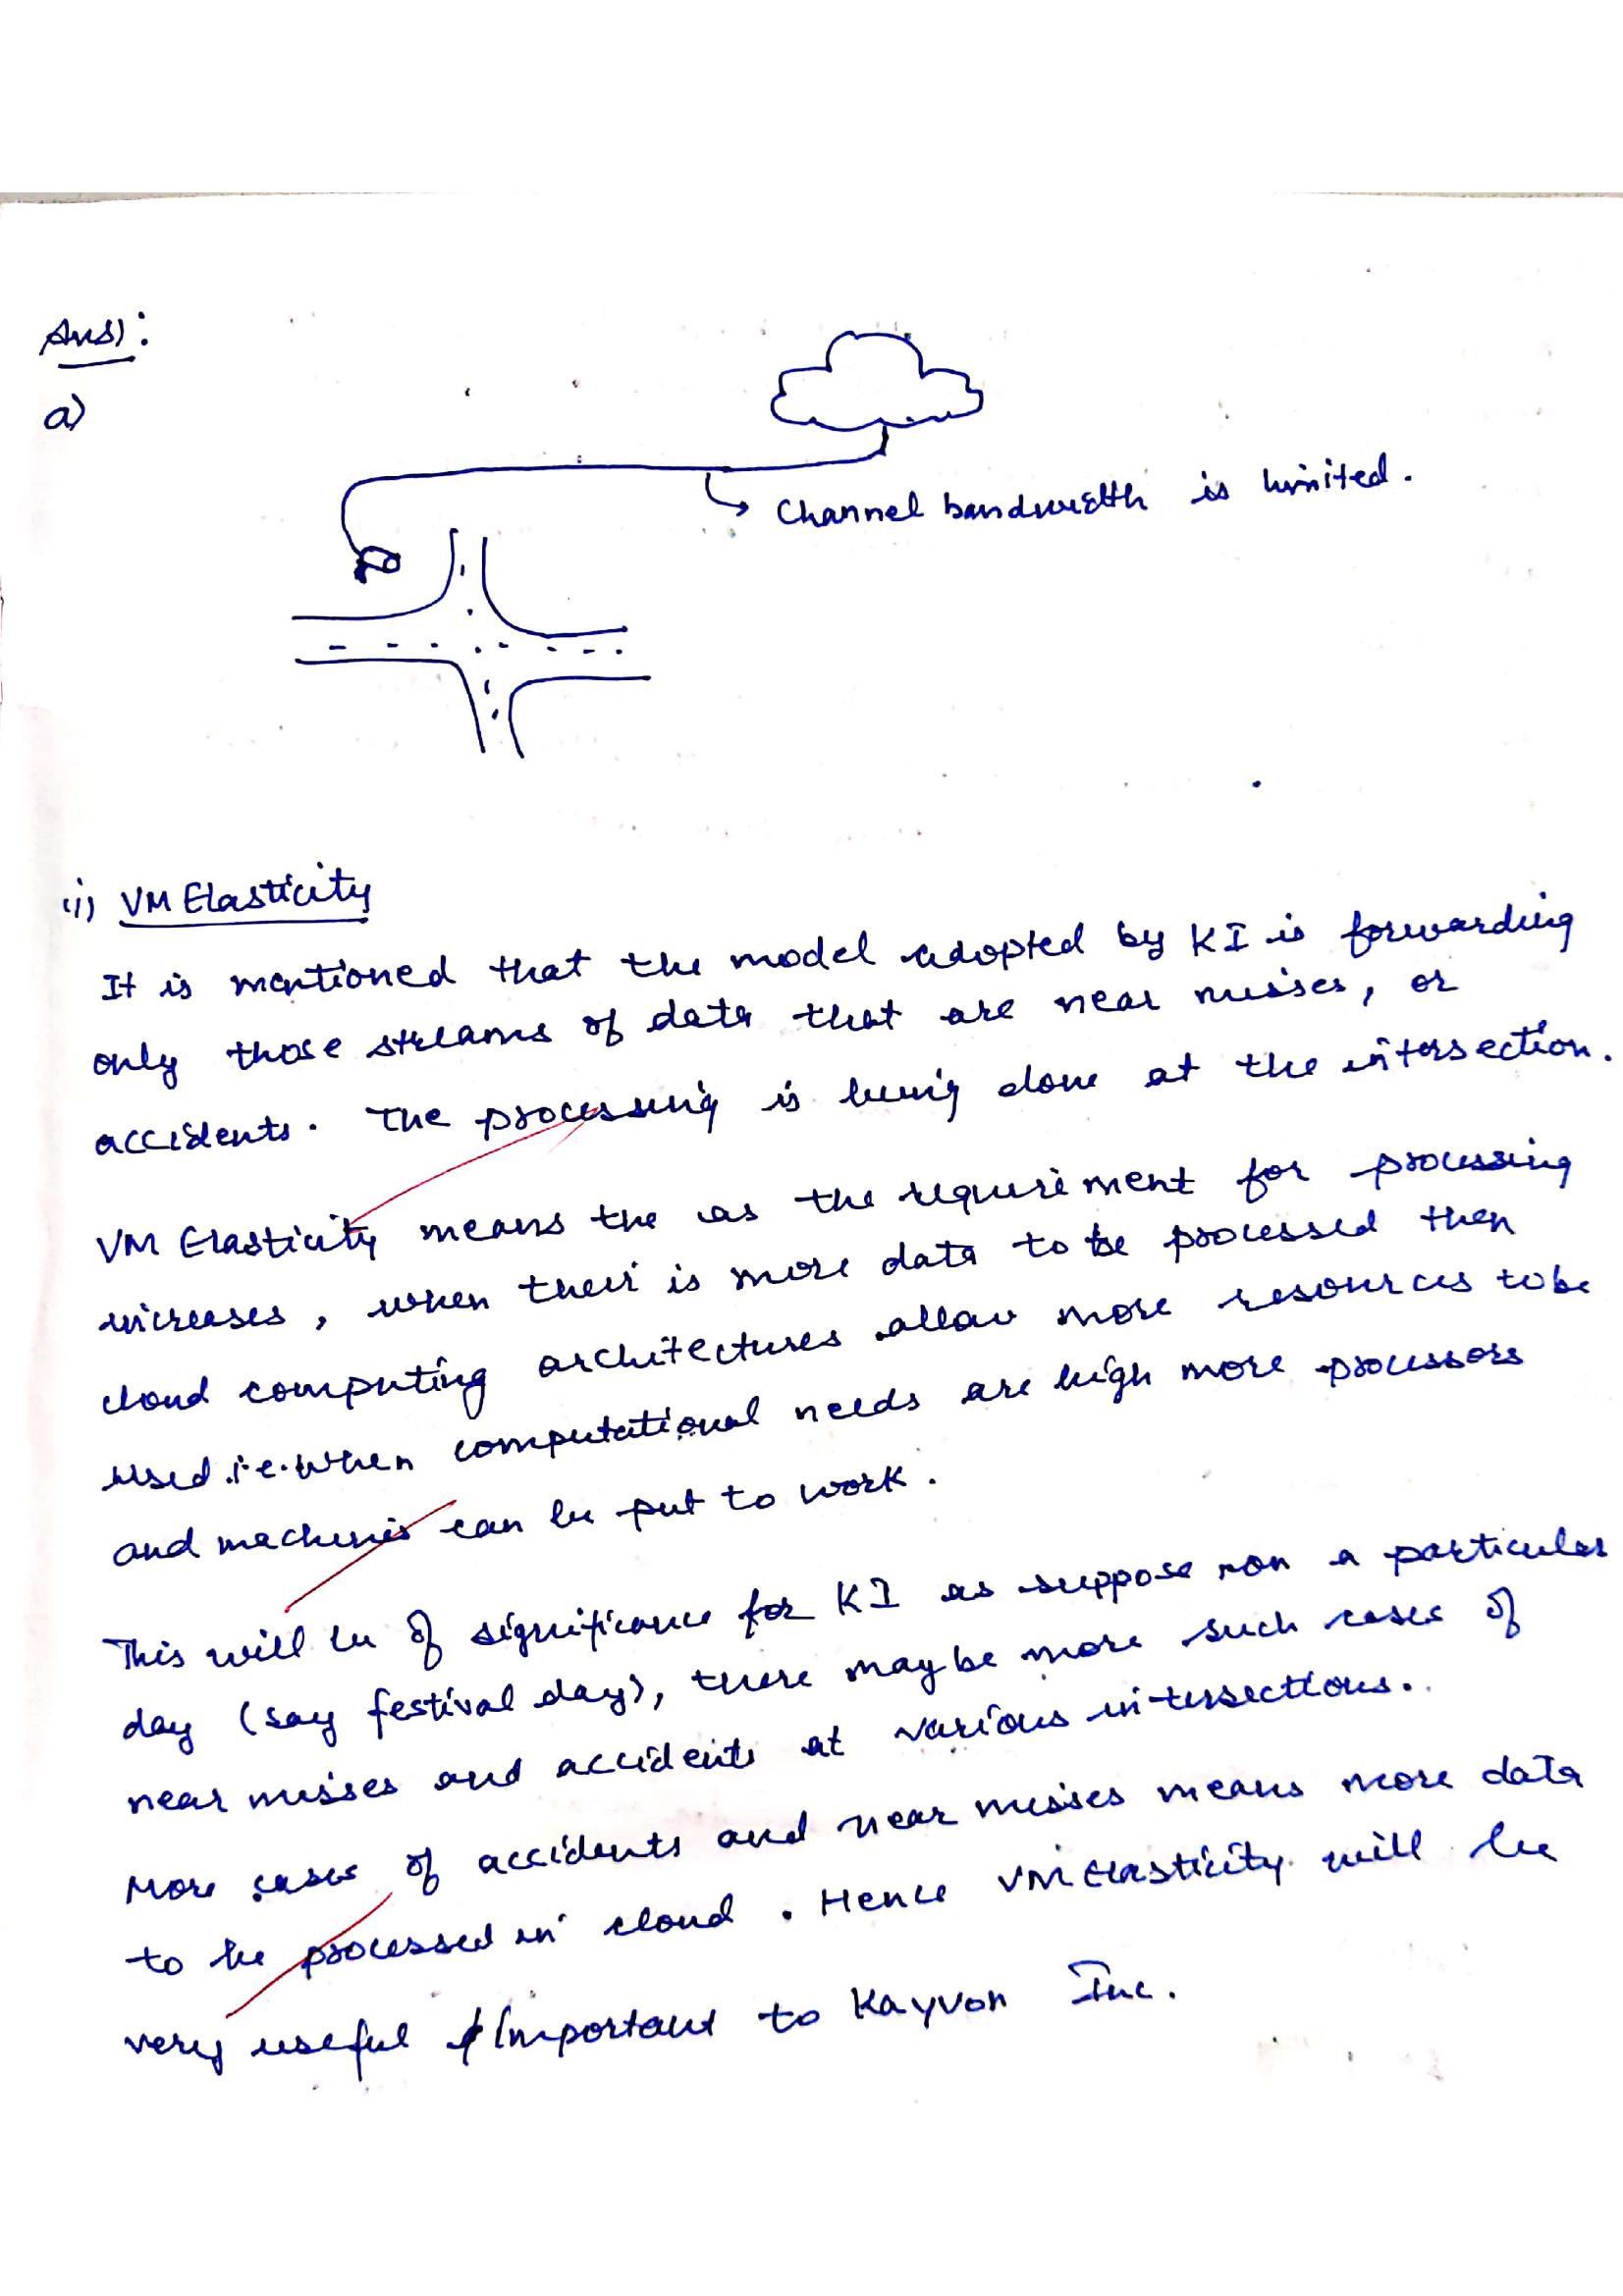 Ans):
a)
Channel bandwidth is limited.
(i) VM Elasticity
It is mentioned that the model adopted by KI is forwarding
only those streams of data that are near misses, or
accidents. The processing is being done at the intersection.
VM Elasticity means the as the requirement for processing
increases, when their is more data to be processed then
cloud computing architectures allow more resources to be
used i.e. when computational needs are high more processors
and machines can be put to work.
This will be of significance for KI as suppose on a particular
day (say festival day), there maybe more such cases of
near misses and accidents at various intersections.
More cases of accidents and near misses means more data
to be processed in cloud. Hence VM Elasticity will be
very useful /Important to Kayvon Inc.